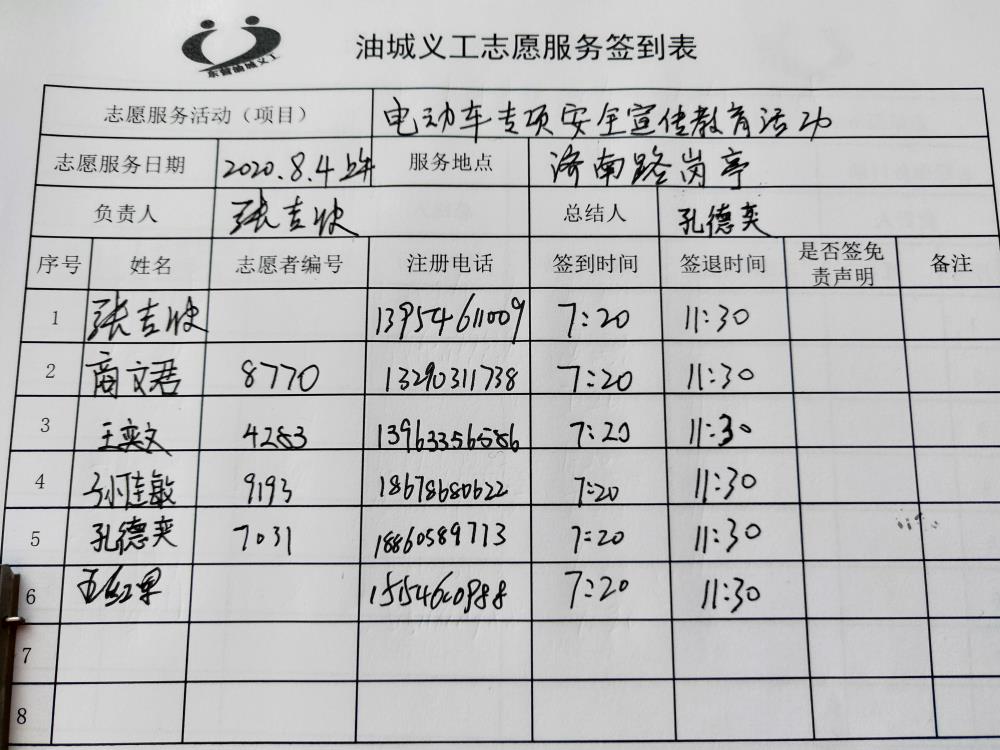 东营油城义工
油城义工志愿服务签到表
志愿服务活动（项目） 电动车专项安全宣传教育活动
志愿服务日期 2020.8.4上午 服务地点 济南路岗亭
负责人 张吉 总结人 孔德奕
序号 姓名 志愿者编号 注册电话 签到时间 签退时间 是否签免责声明 备注
1 张吉 13954611009 7:20 11:30
2 商文君 8770 13290311738 7:20 11:30
3 王奕文 4283 7:20 11:30
4 孙佳敏 9193 18678680622 7:20 11:30
5 孔德奕 7031 18860589713 7:20 11:30
6 红果 7:20 11:30
7
8